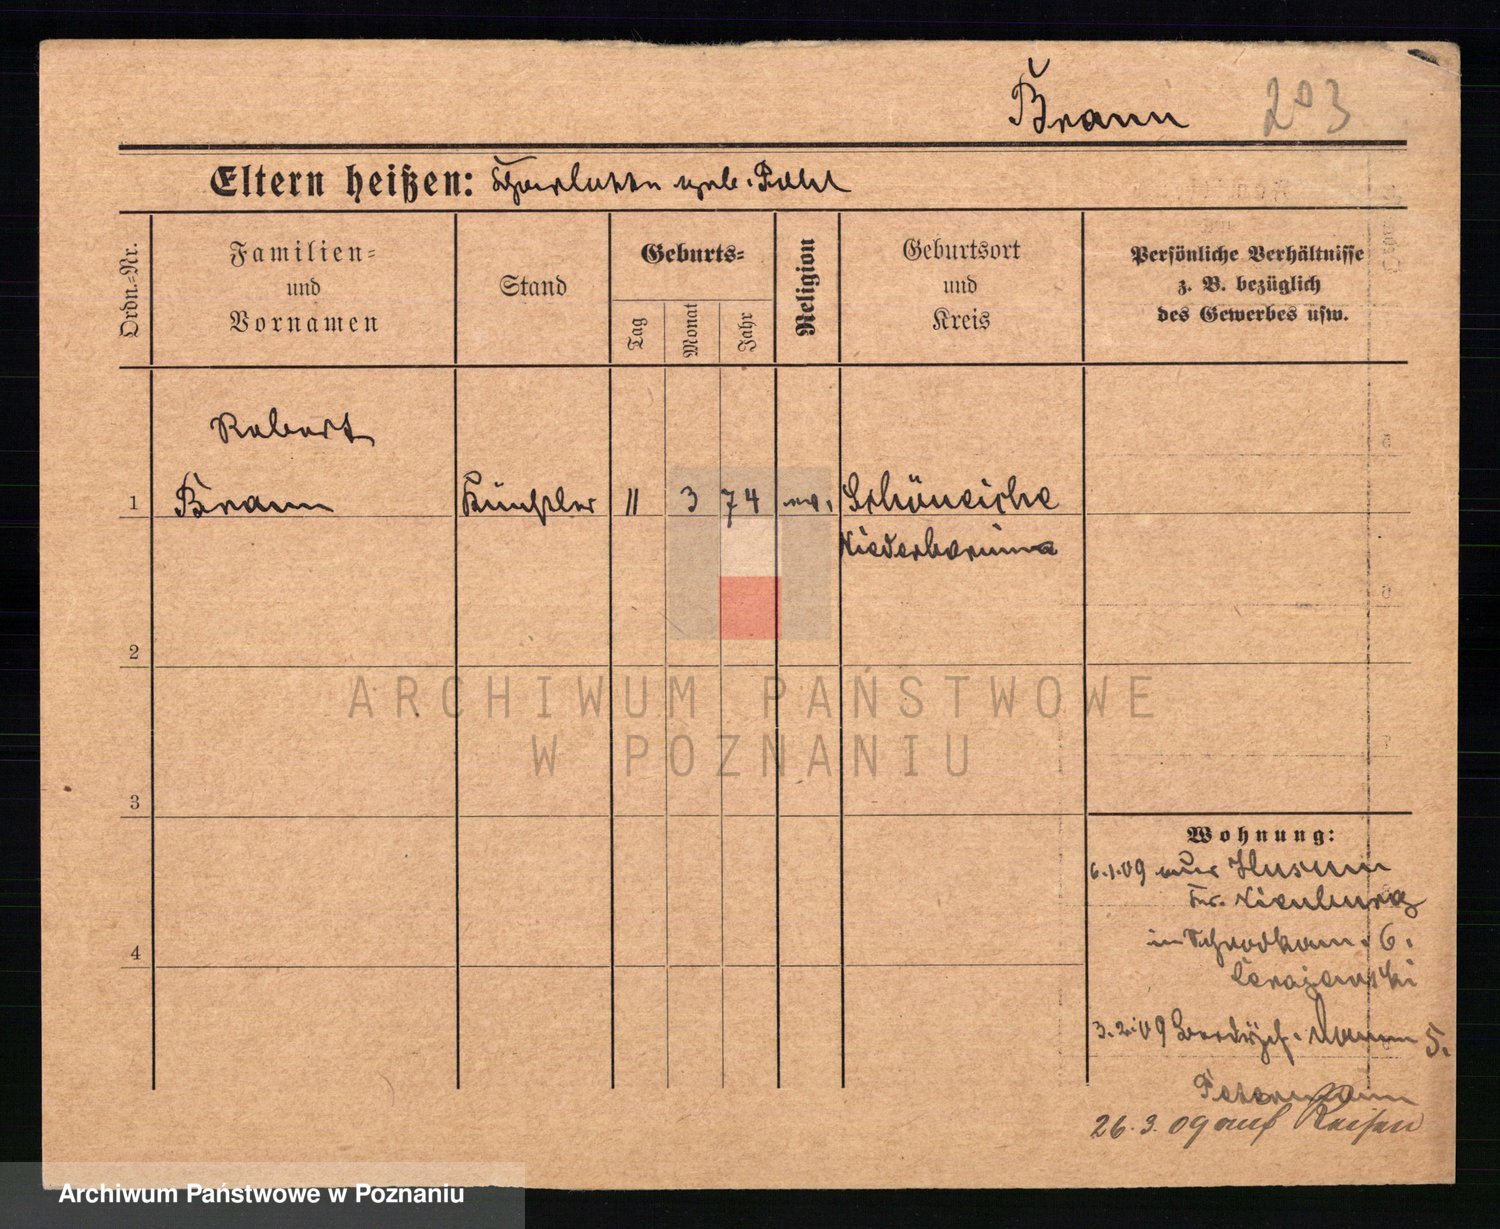 Braun 203
Eltern heißen: Charlotte geb. Pohl
Ordn.-Nr.
Familien-
und
Vornamen
Stand
Geburts-
Tag
Monat
Jahr
Religion
Geburtsort
und
Kreis
Persönliche Verhältnisse
z. B. bezüglich
des Gewerbes usw.
Robert
1 Braun Künstler 11 3 74 ev. Schöneiche
Niederbarnim
2
3
4
Wohnung:
6.1.09 aus Husum
Kr. Nienburg
in Schrodkam. 6.
3.2.09 5.
Petermann
26.3.09 auf Reisen
ARCHIWUM PAŃSTWOWE
W POZNANIU
Archiwum Państwowe w Poznaniu